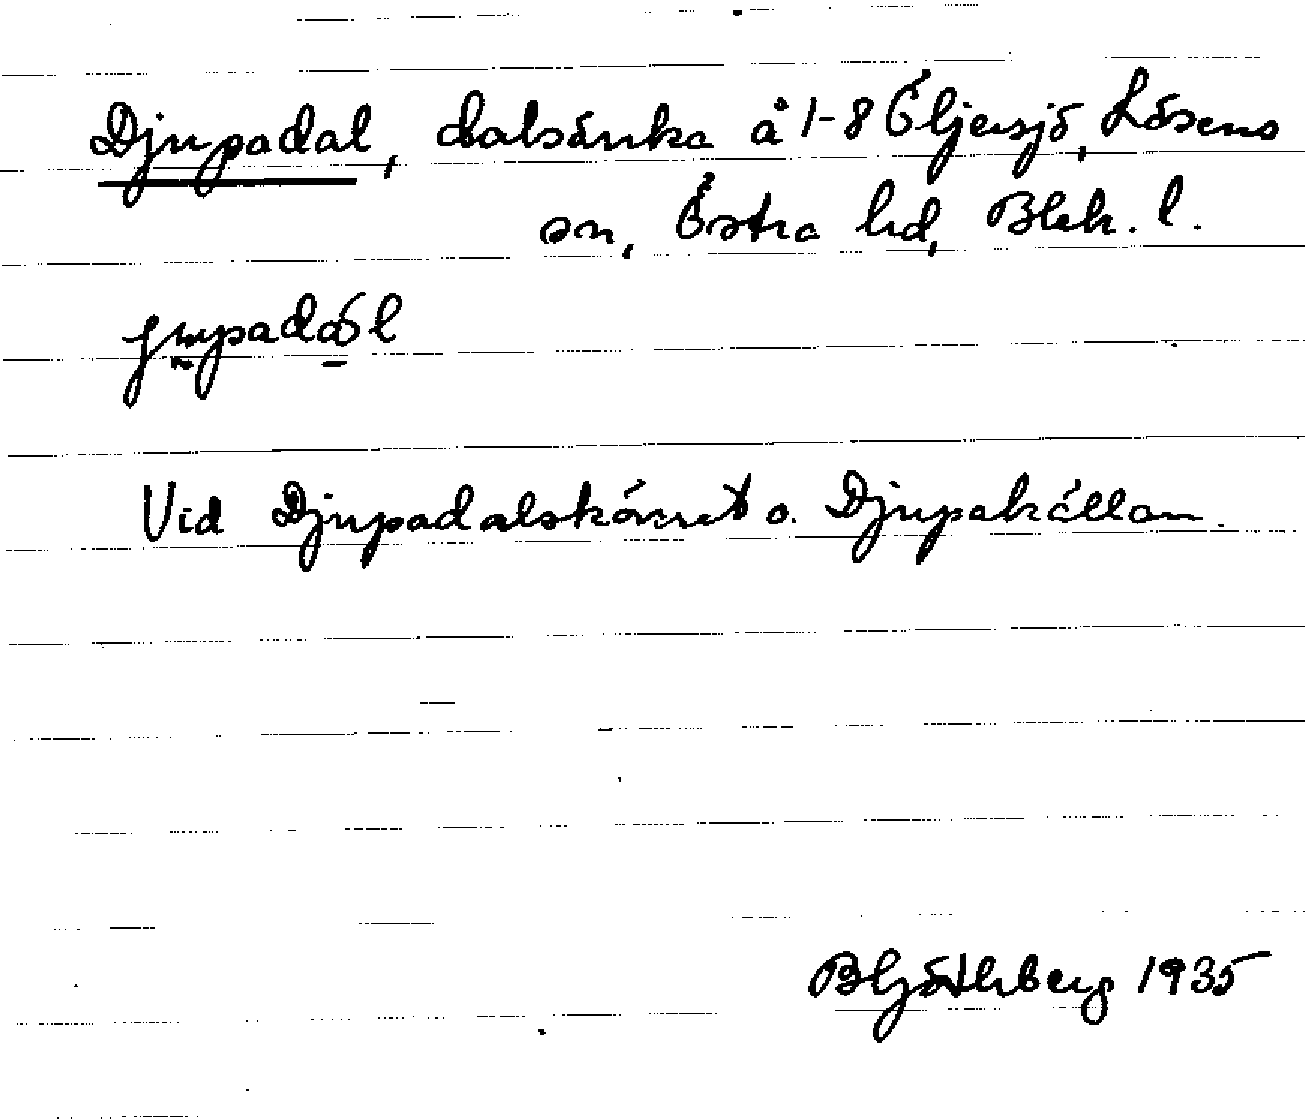 Djupadal, dalsänka å 1-8 Öljersjö, Lösens
sn, Östra hd, Blek. l.
Vid Djupadalskärret o. Djupakällan.
1935